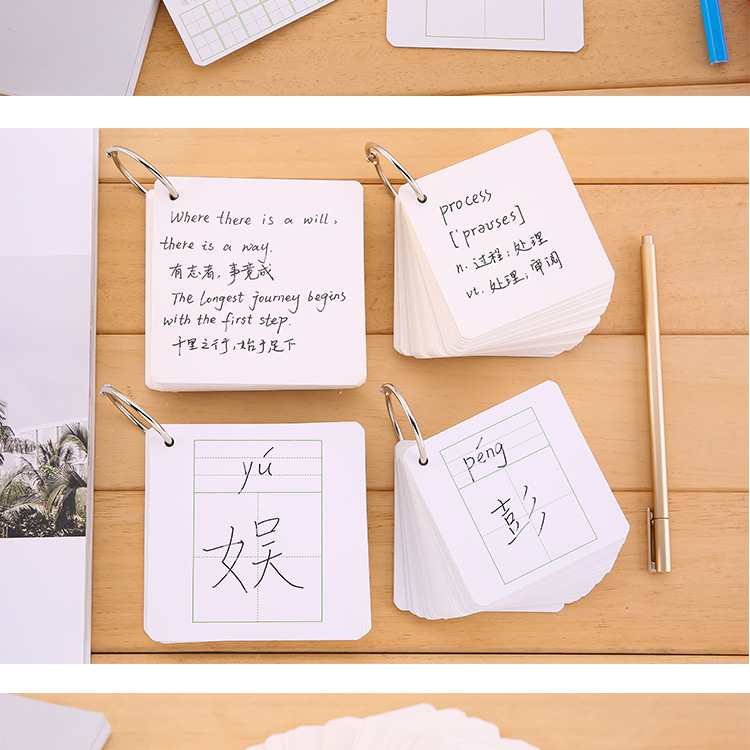 Where there is a will,
there is a way.
有志者,事竟成
The longest journey begins
with the first step.
十里之行,始于足下
process
['prəʊses]
n. 过程;处理
vt. 处理;审阅
yú
娱
péng
彭